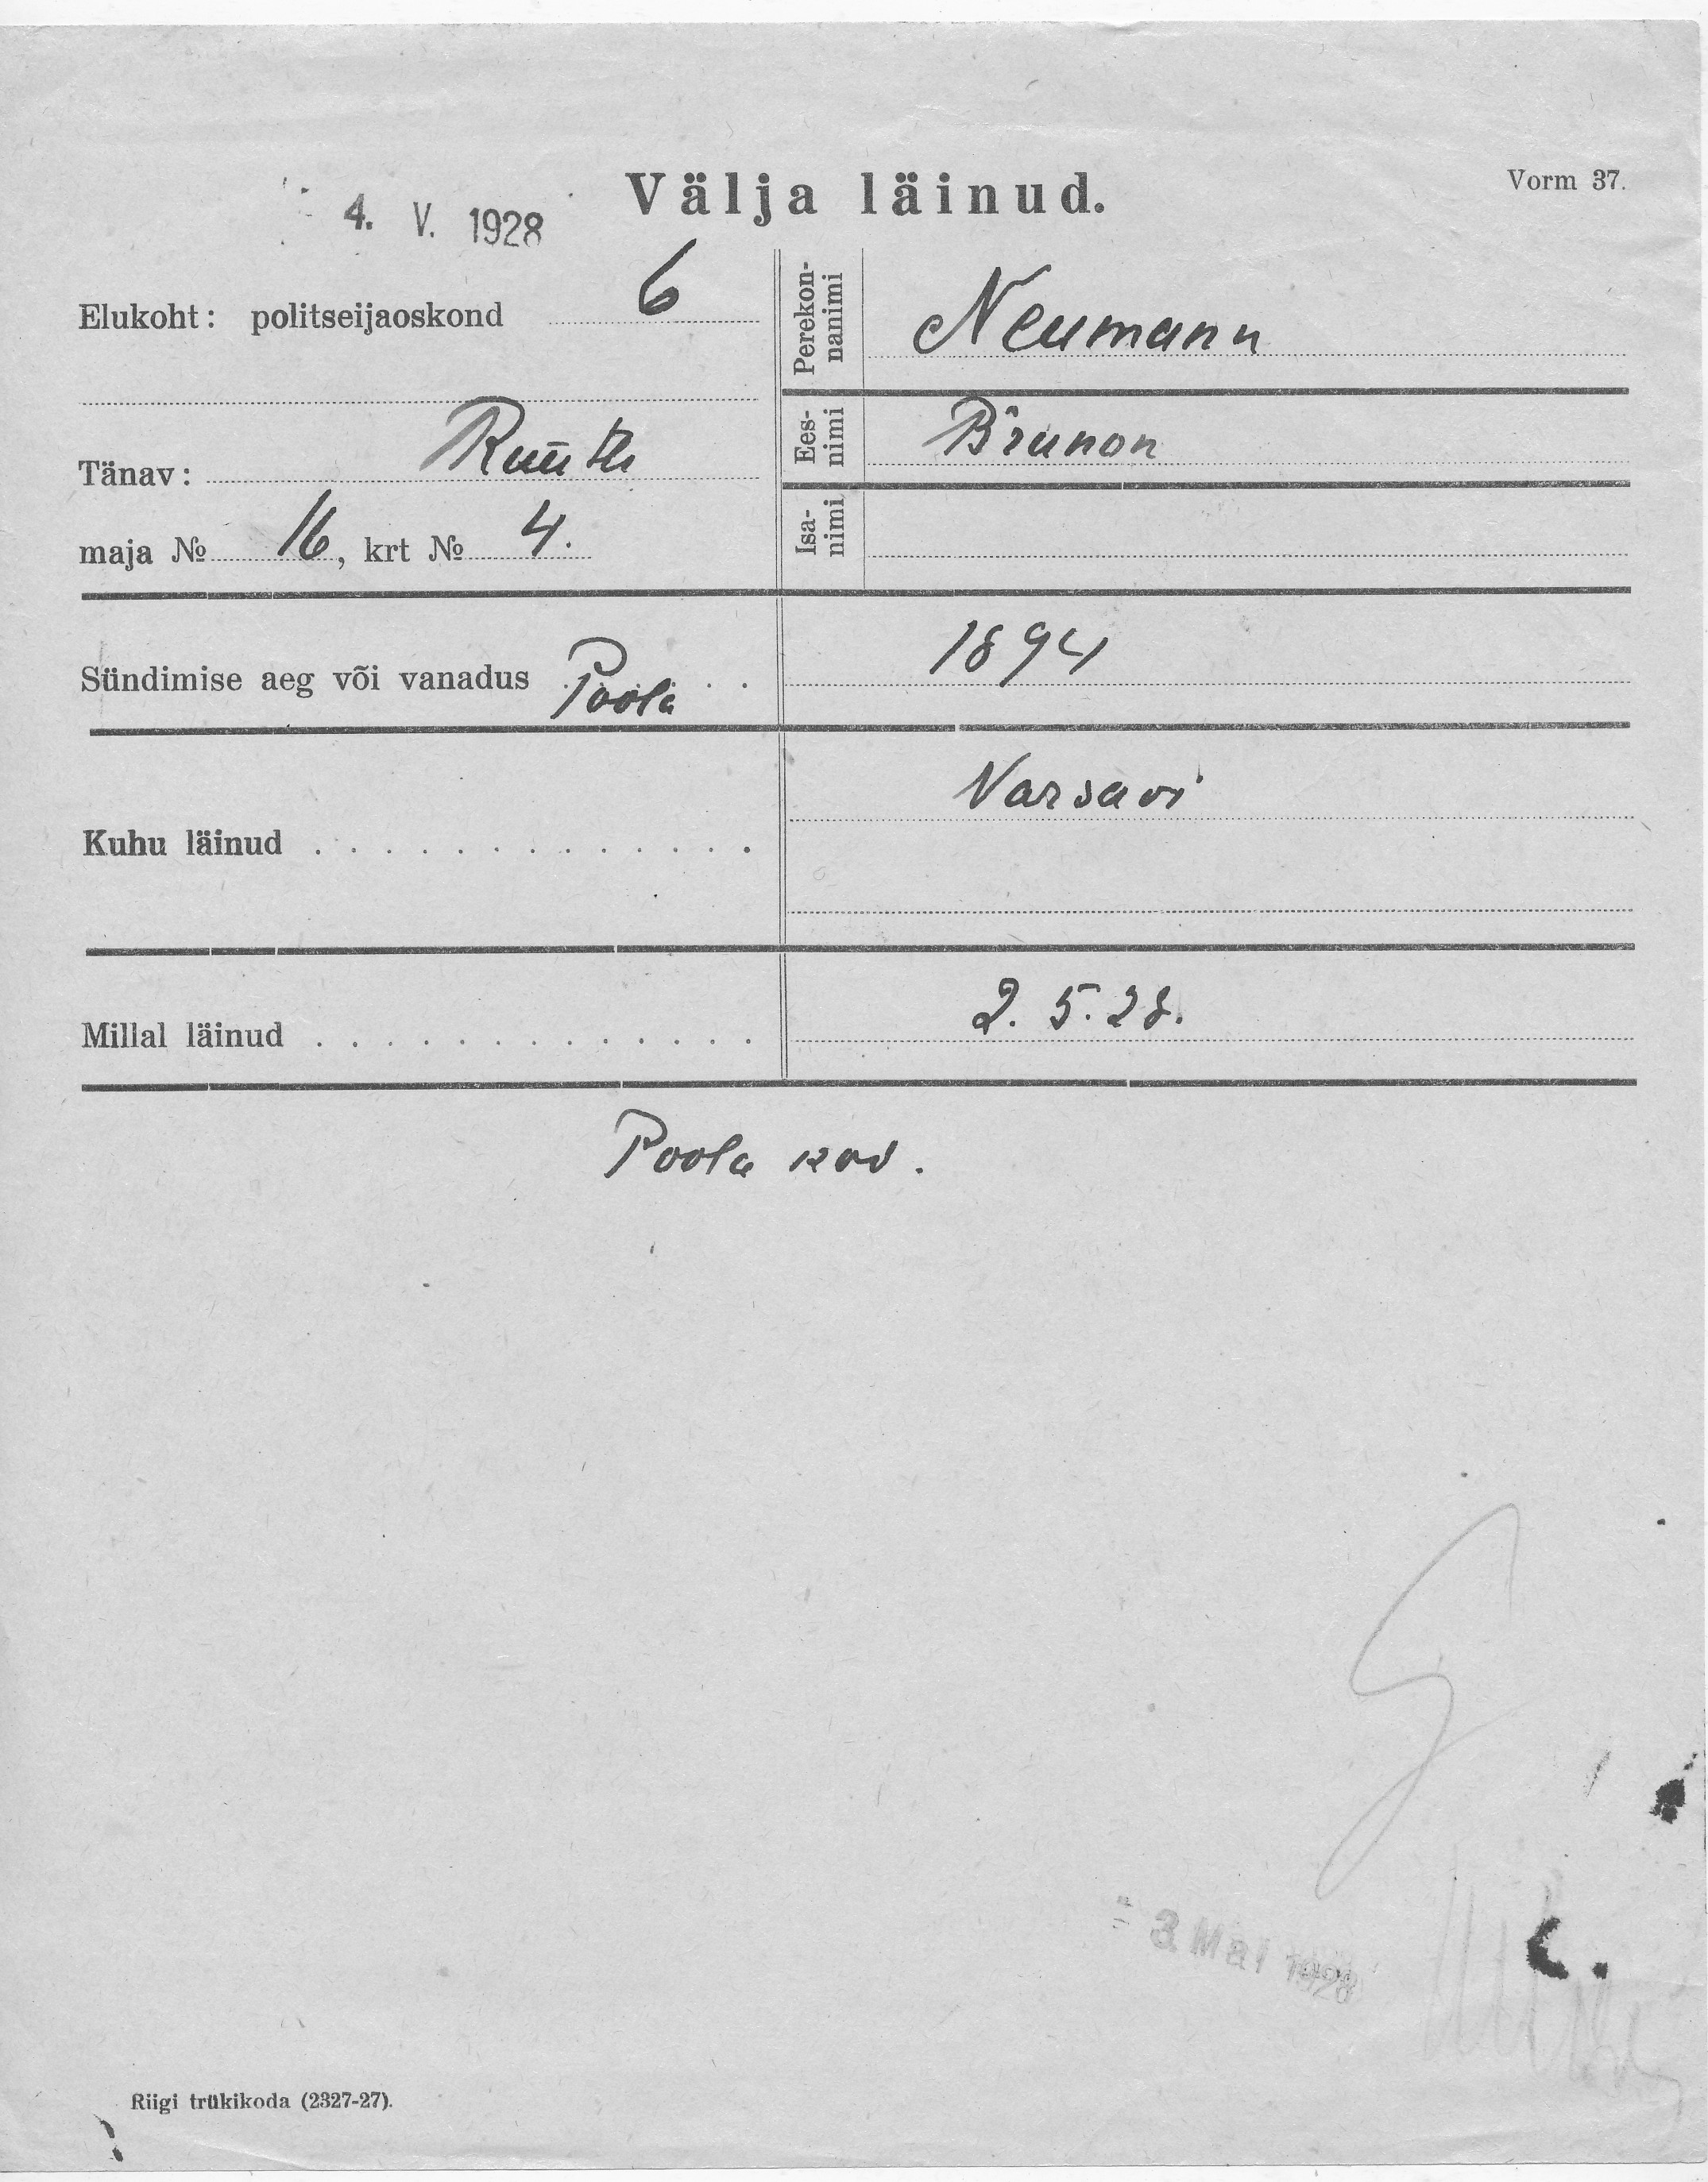 Välja läinud.
Vorm 37.
4. V. 1928
Elukoht: politseijaoskond 6
Perekonnanimi Neumann
Eesnimi Brunon
Tänav: Rüütli
Isanimi
maja № 16, krt № 4.
Sündimise aeg või vanadus Poola 1894
Kuhu läinud Varsavi
Millal läinud 2. 5. 28.
Poola kod.
3 Mai 1928
Riigi trükikoda (2327-27).